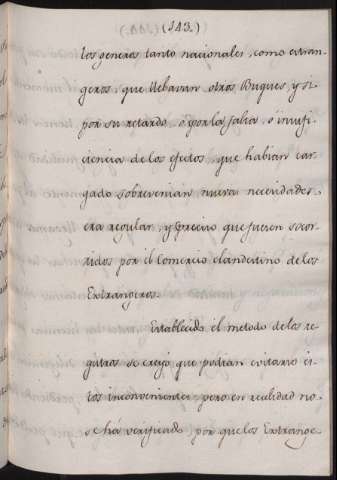 (143.)
los generos tanto nacionales, como extran
geros, que llebavan otros Buques, y si
por su retardo, ò por la falta, ò insufi
ciencia de los efectos, que habian car
gado sobrevenian nuevas necesidades,
era regular, y preciso que fuesen socor
ridos por el Comercio clandestino de los
Extrangeros.
Establecido el metodo de los re
gistros se creyó que podrian evitarse es
tos inconvenientes, pero en realidad no
se ha verificado, por que los Extrange